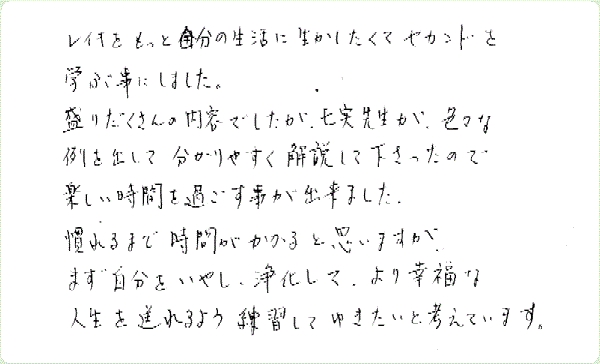 レイキをもっと自分の生活に生かしたくてセカンドを
学ぶ事にしました。
盛りだくさんの内容でしたが、七実先生が、色々な
例を出して分かりやすく解説して下さったので
楽しい時間を過ごす事が出来ました。
慣れるまで時間がかかると思いますが、
まず自分をいやし、浄化して、より幸福な
人生を送れるよう練習してゆきたいと考えています。